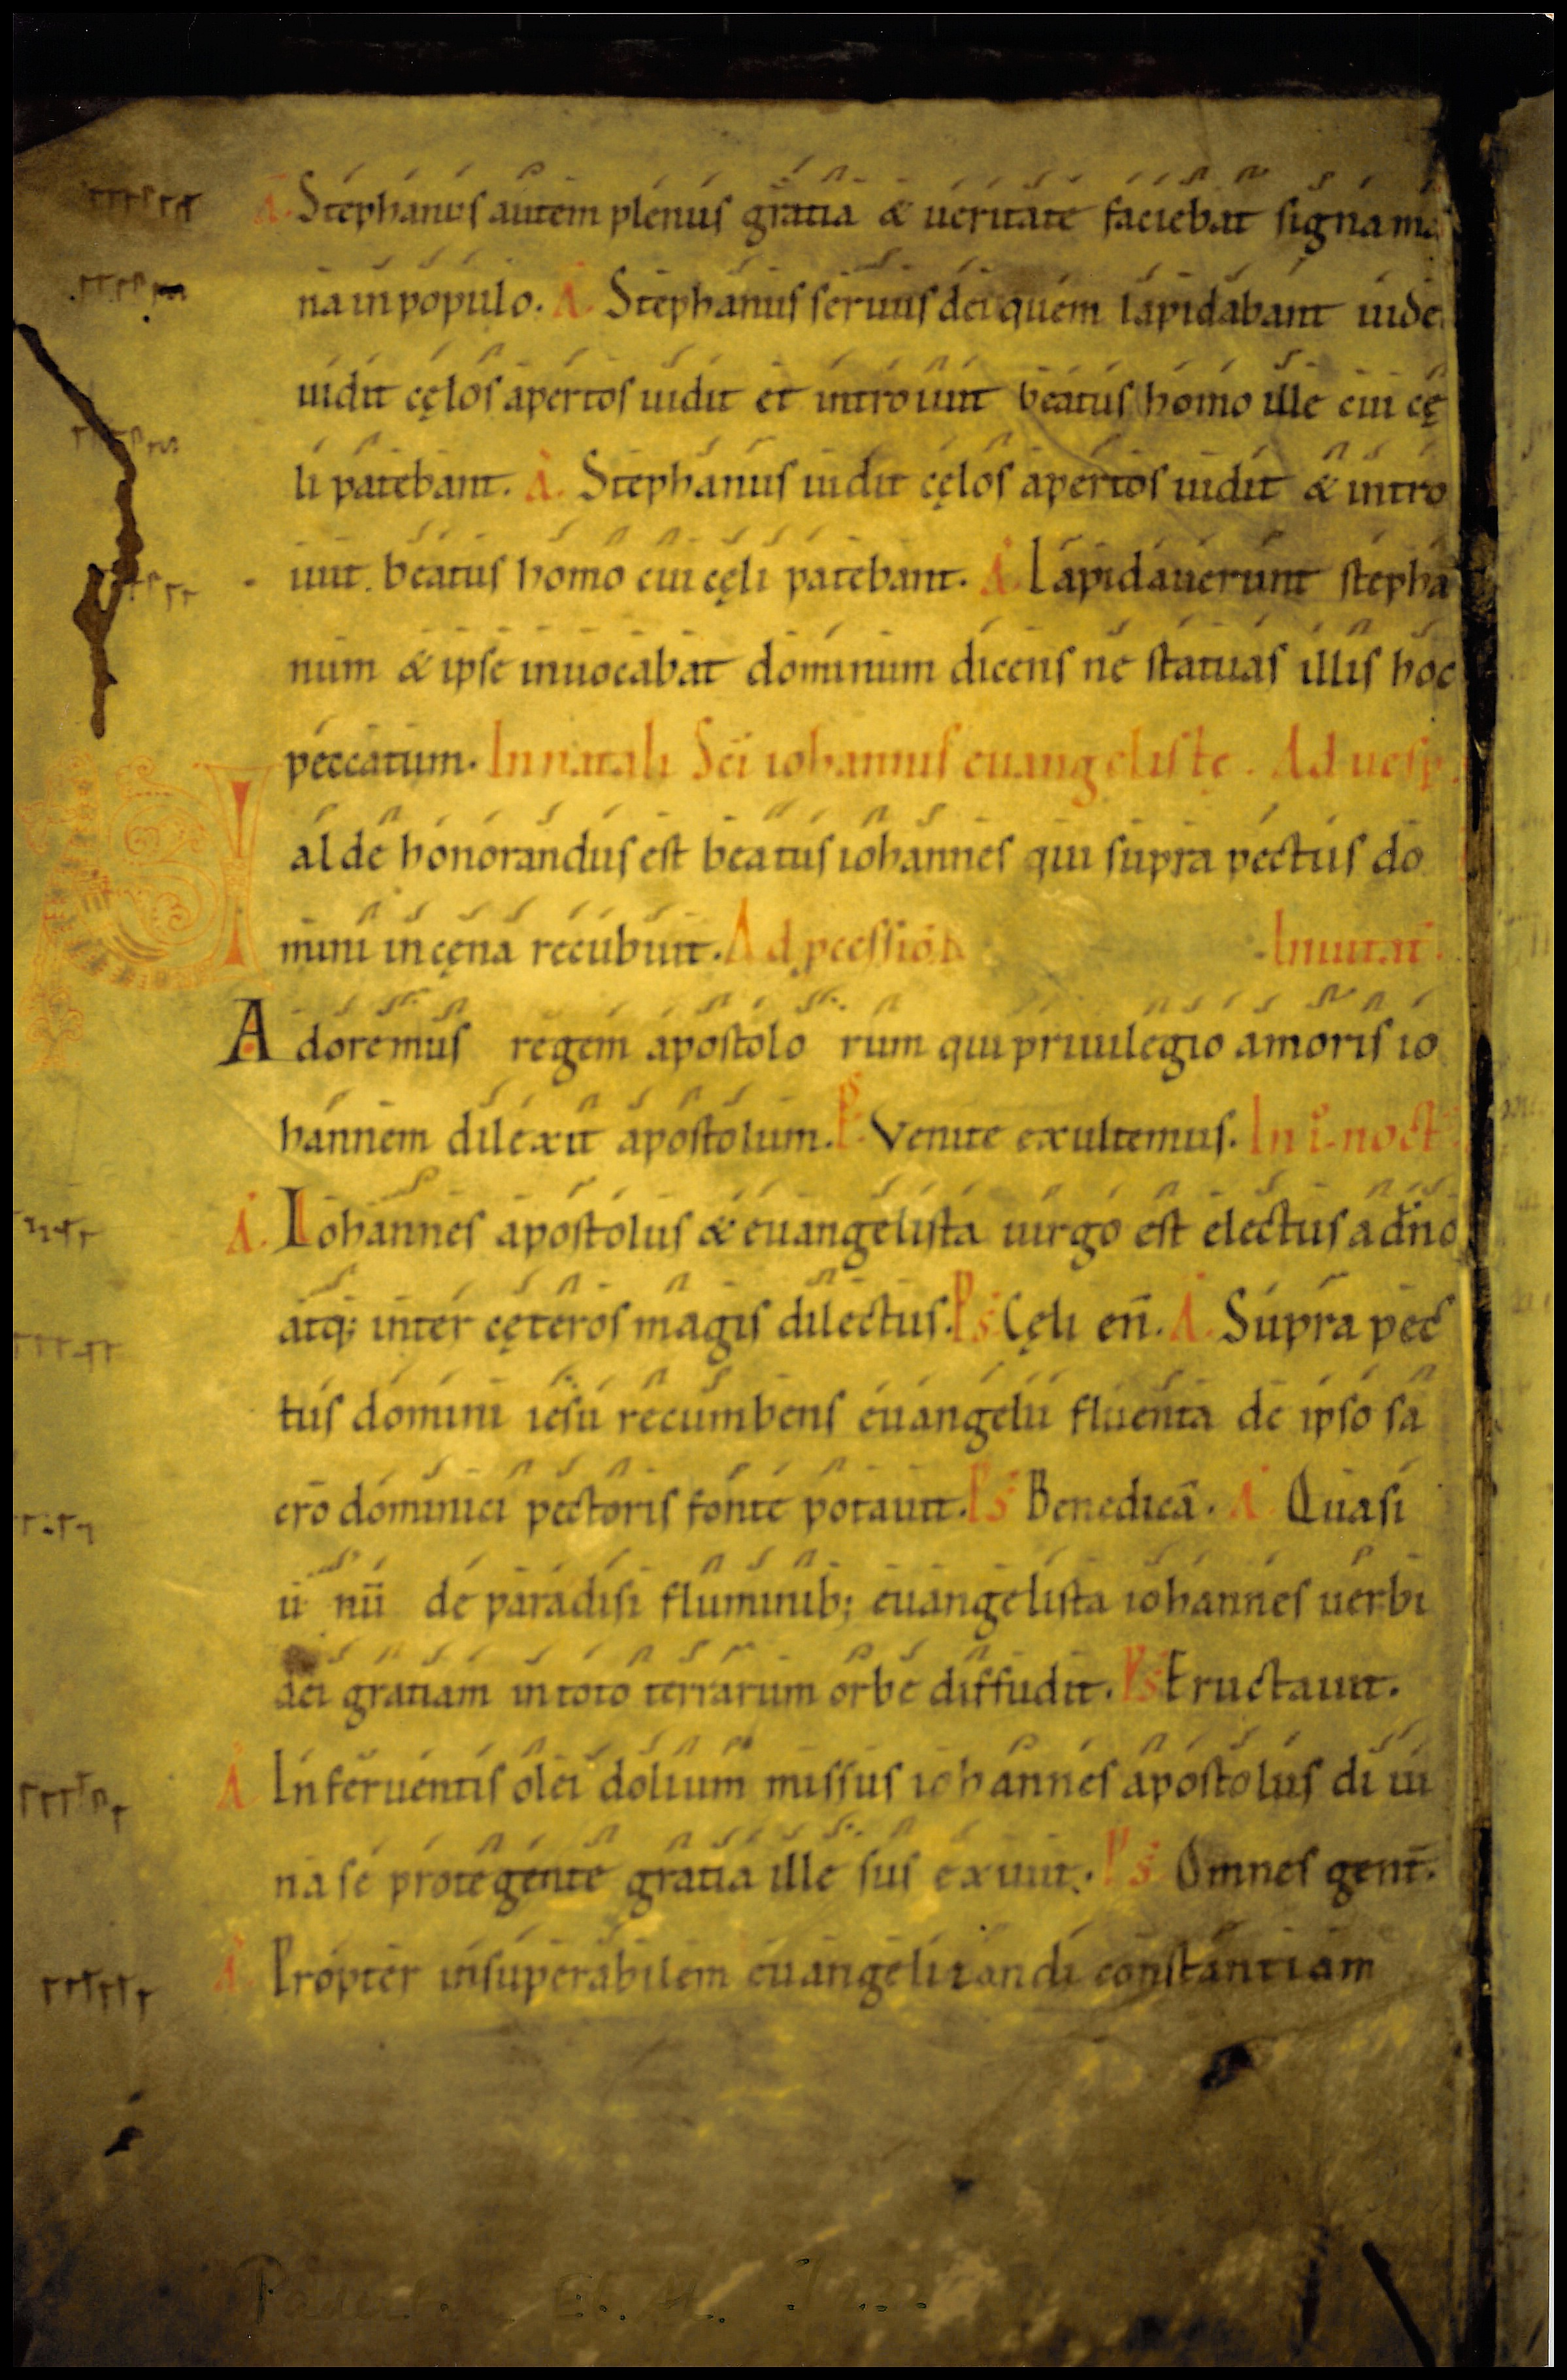 A. Stephanus autem plenus gratia & ueritate faciebat signa ma
na in populo. A. Stephanus seruus dei quem lapidabant uide
uidit cęlos apertos uidit et introiuit beatus homo ille cui cę
li patebant. A. Stephanus uidit cęlos apertos uidit & intro
iuit beatus homo cui cęli patebant. A. Lapidauerunt stepha
num & ipse inuocabat dominum dicens ne statuas illis hoc
peccatum. In natali Sc̄i iohannis euangelistę. Ad uesp.
V alde honorandus est beatus iohannes qui supra pectus do
mini in cęna recubuit. Ad pcessiōn Inuitat̄.
A doremus regem apostolo rum qui priuilegio amoris io
hannem dilexit apostolum. Ps. Venite exultemus. In i. noct̄.
A. Iohannes apostolus & euangelista uirgo est electus a dn̄o
atq; inter cęteros magis dilectus. Ps. Cęli en̄. A. Supra pec
tus domini iesu recumbens euangelii fluenta de ipso sa
cro dominici pectoris fonte potauit. Ps. Benedicā. A. Quasi
u nū de paradisi fluminib; euangelista iohannes uerbi
dei gratiam in toto terrarum orbe diffudit. Ps. Eructauit.
A. In feruentis olei dolium missus iohannes apostolus di ui
na se protegente gratia ille sus exiuit. Ps. Omnes gent̄.
A. Propter insuperabilem euangelizandi constantiam